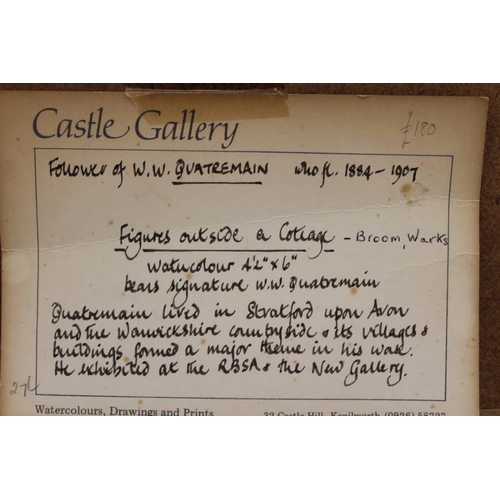 Castle Gallery
£180
Follower of W.W. QUATREMAIN who fl. 1884-1907
Figures outside a Cottage - Broom, Warks
Watercolour 4½" x 6"
bears signature W.W. Quatremain
Quatremain lived in Stratford upon Avon
and the Warwickshire countryside & its villages &
buildings formed a major theme in his work.
He exhibited at the RBSA & the New Gallery.
274
Watercolours, Drawings and Prints
32 Castle Hill, Kenilworth (0926) 58727